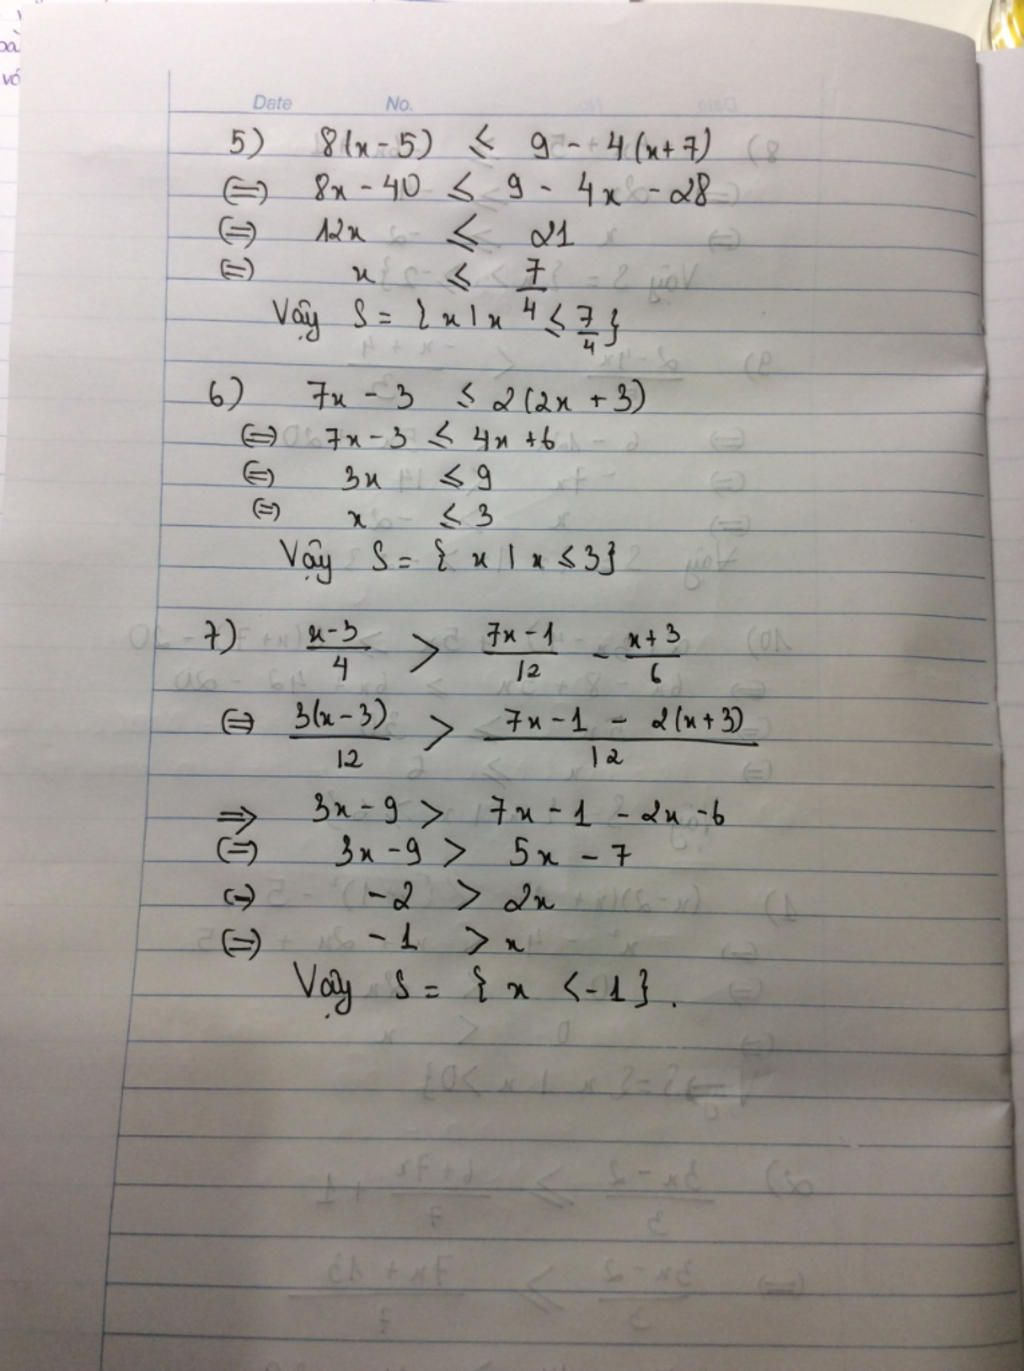 Date No.
5) 8(x-5) ≤ 9 - 4(x+7)
(=) 8x - 40 ≤ 9 - 4x - 28
(=) 12x ≤ 21
(=) x ≤ 7/4
Vậy S = { x | x ≤ 7/4 }
6) 7x - 3 ≤ 2(2x + 3)
(=) 7x - 3 ≤ 4x + 6
(=) 3x ≤ 9
(=) x ≤ 3
Vậy S = { x | x ≤ 3 }
7) (x-3)/4 > (7x-1)/12 - (x+3)/6
(=) 3(x-3)/12 > (7x - 1 - 2(x+3))/12
=> 3x - 9 > 7x - 1 - 2x - 6
(=) 3x - 9 > 5x - 7
(-) -2 > 2x
(=) -1 > x
Vậy S = { x < -1 }.